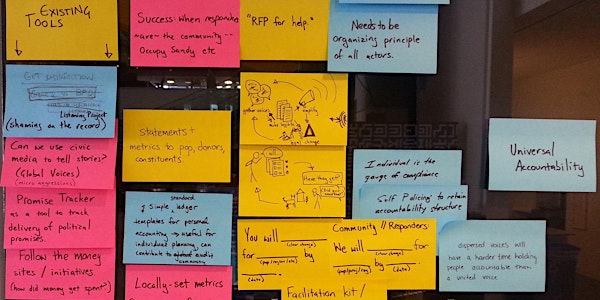 EXISTING
TOOLS
Success: When responders
~are~ the community --
Occupy Sandy etc
"RFP for help."
Needs to be
organizing principle
of all actors.
GET SATISFACTION
Listening Project
(shaming on the record)
Can we use civic
media to tell stories?
(Global Voices)
(micro aggressions)
Promise Tracker
as a tool to track
delivery of political
promises.
Follow the money
sites / initiatives
(how did money get spent?)
Statements +
metrics to pop, donors,
constituents.
standard
Simple ledger
templates for personal
accounting → useful for
individual planning, can
contribute to audit
community
Locally-set metrics
gather voices
amplify
legal change
You will
for
by
(date)
Community // Responders:
We will
for
by
(date)
Facilitation kit/
Individual is the
gauge of compliance
Self Policing to retain
accountability structure
dispersed voices will
have a harder time holding
people accountable than
a united voice
Universal
Accountability